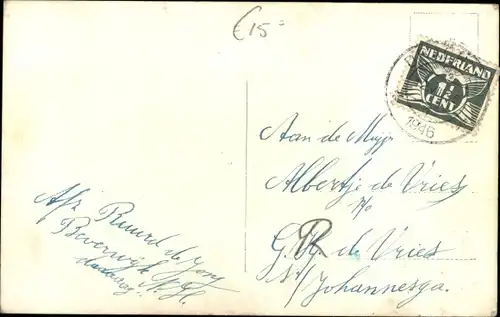 €15=
NEDERLAND
1½
CENT
1946
Aan de Mejr
Albertje de Vries
p/o
G. R. de Vries
St/Johannesga.
Afz Ruurd de Jong
Beverwijk N.H.